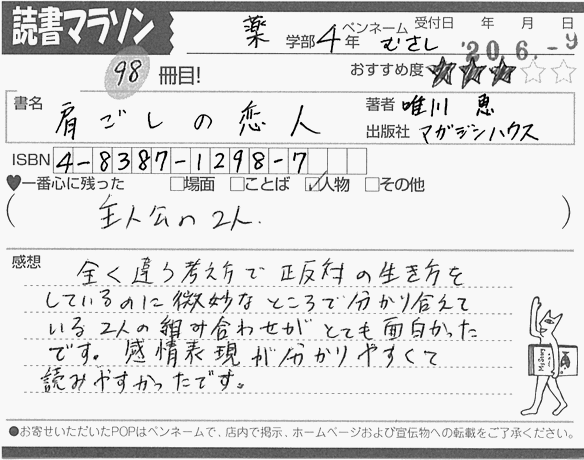 読書マラソン
薬 学部 4年
ペンネーム むさし
受付日 年 月 日
'20.6.-9
98 冊目!
おすすめ度 ★★★☆☆
書名 肩ごしの恋人
著者 唯川 恵
出版社 マガジンハウス
ISBN 4-8387-1298-7
♥一番心に残った □場面 □ことば ☑人物 □その他
( 主人公の2人. )
感想
全く違う考え方で正反対の生き方を
しているのに微妙なところで分かり合えて
いる2人の組み合わせがとても面白かった
です。感情表現が分かりやすくて
読みやすかったです。
●お寄せいただいたPOPはペンネームで、店内で掲示、ホームページおよび宣伝物への転載をご了承ください。